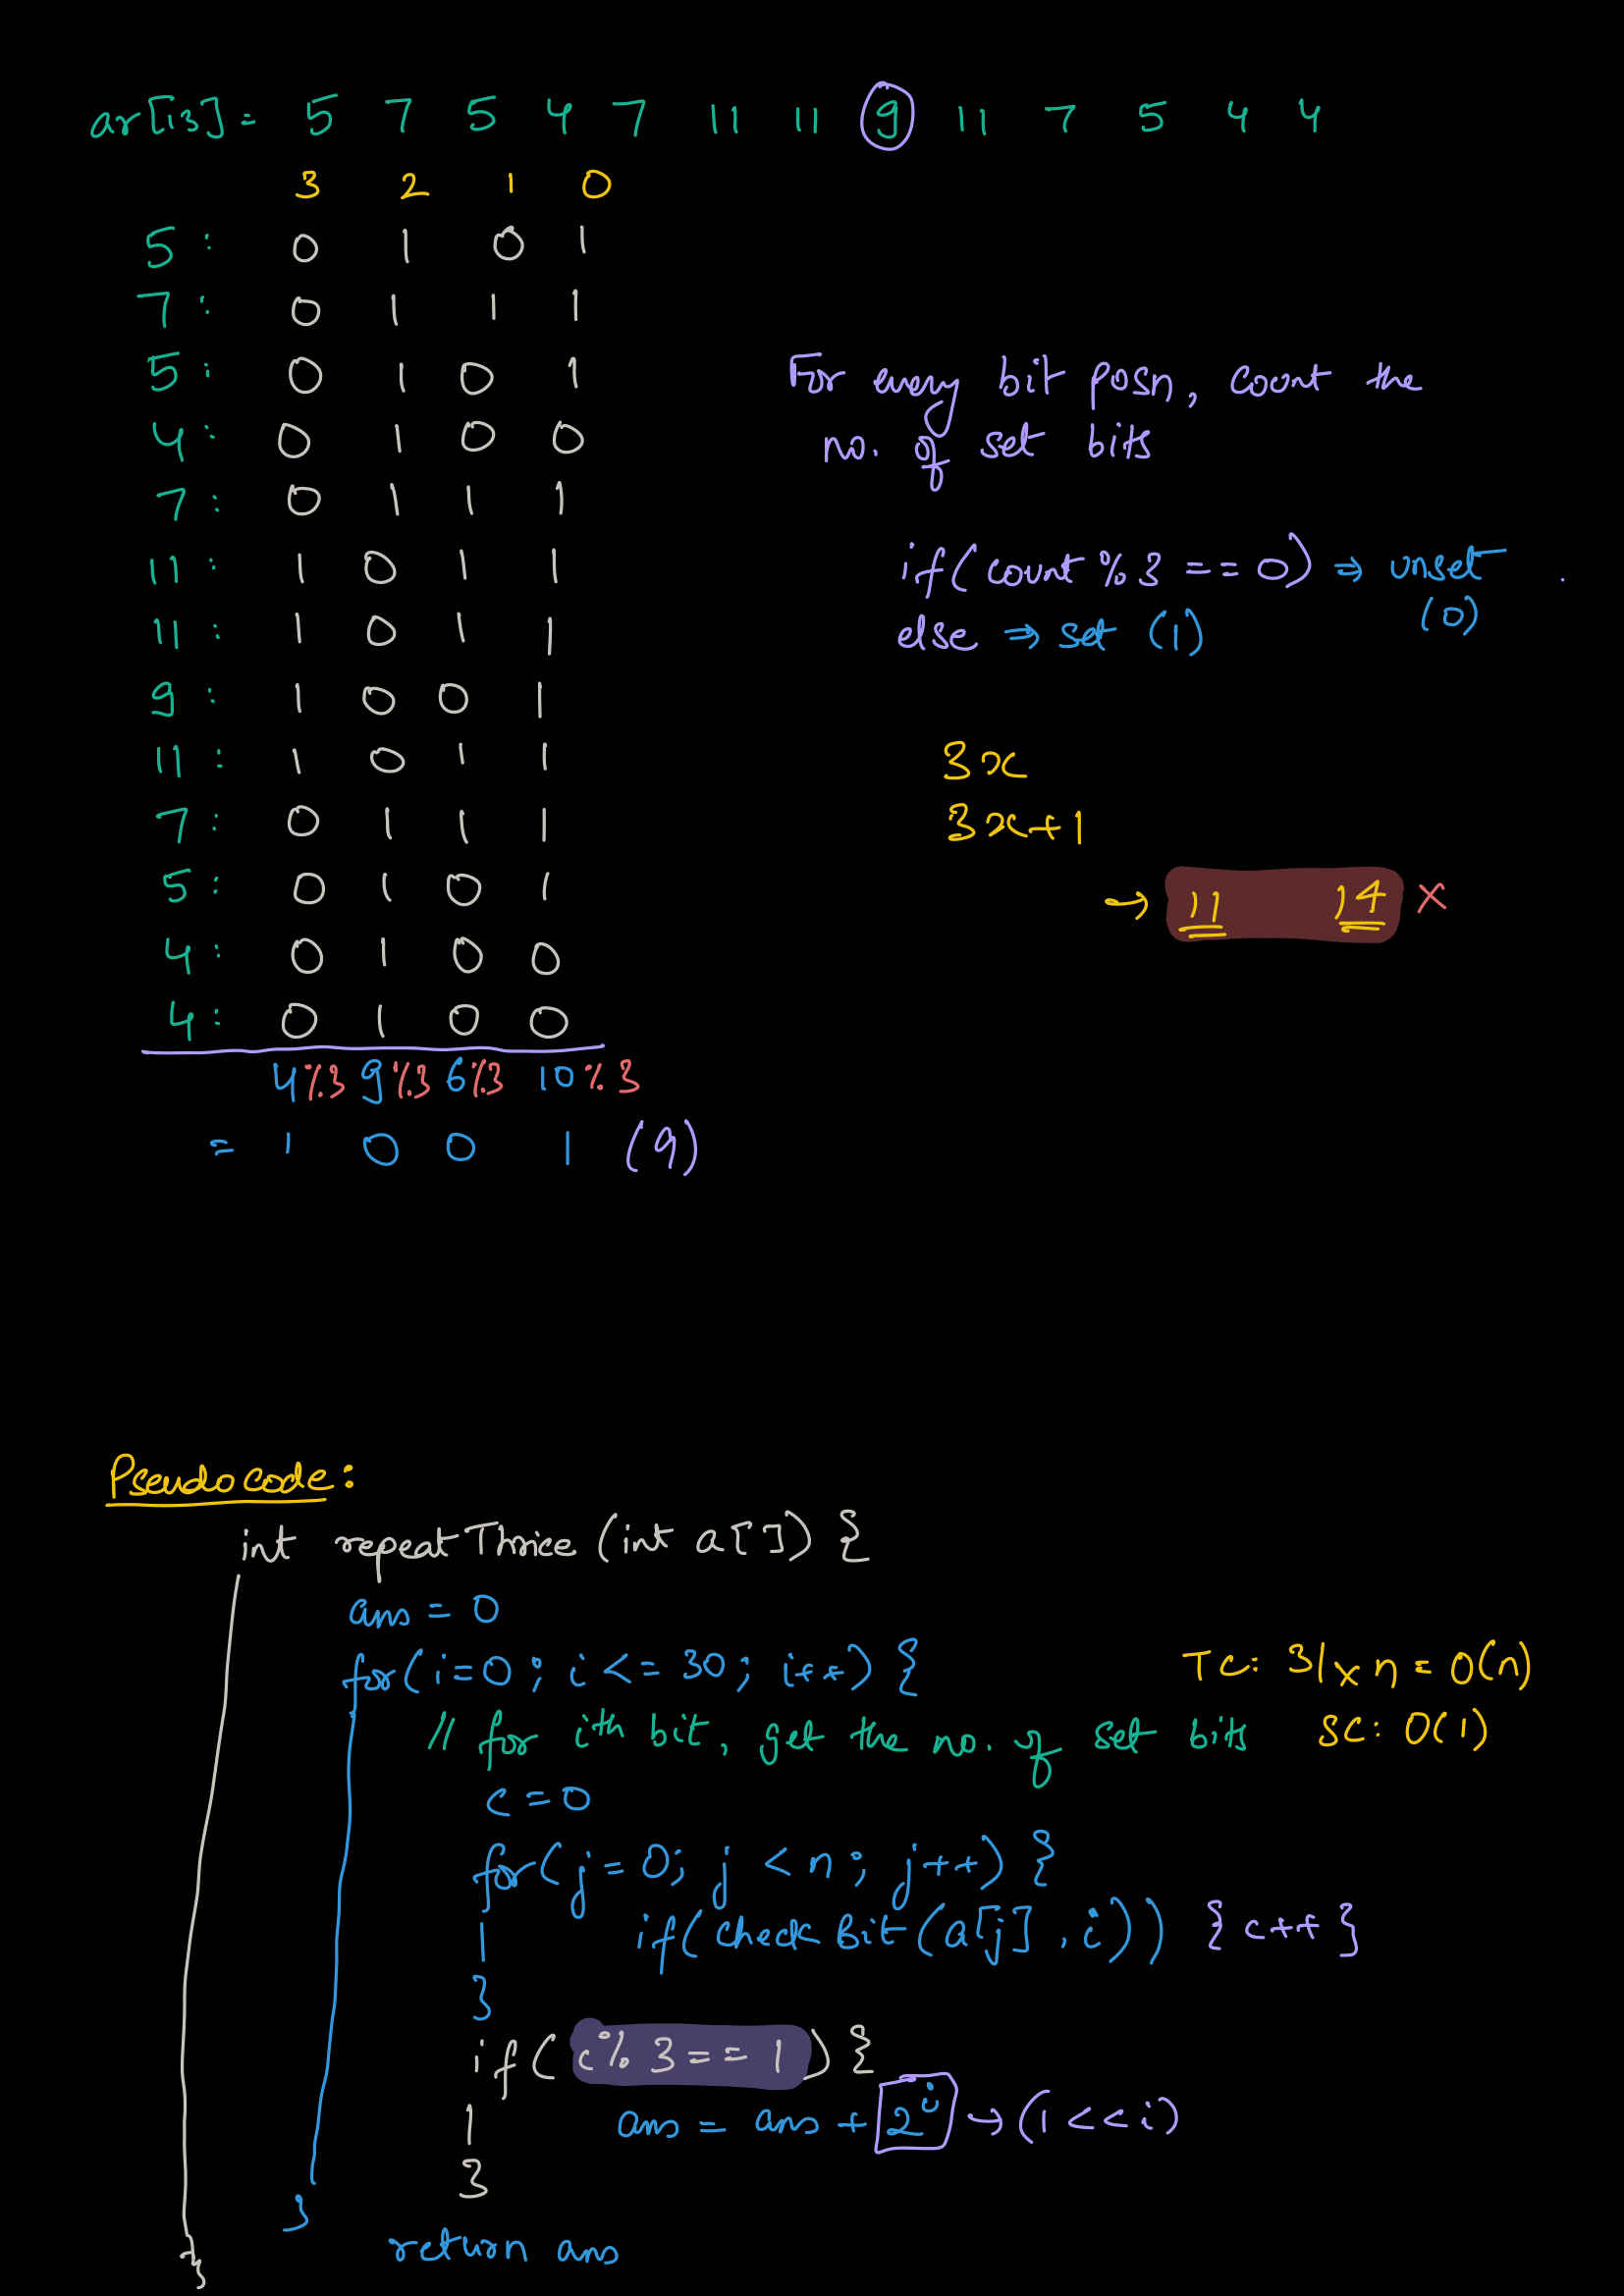 ar[13] = 5 7 5 4 7 11 11 9 11 7 5 4 4
3 2 1 0
5 : 0 1 0 1
7 : 0 1 1 1
5 : 0 1 0 1
4 : 0 1 0 0
7 : 0 1 1 1
11 : 1 0 1 1
11 : 1 0 1 1
9 : 1 0 0 1
11 : 1 0 1 1
7 : 0 1 1 1
5 : 0 1 0 1
4 : 0 1 0 0
4 : 0 1 0 0
4%3 9%3 6%3 10%3
= 1 0 0 1 (9)
For every bit posn, count the
no. of set bits
if(count % 3 == 0) ⇒ unset
(0)
else ⇒ set (1)
3x
3x+1
→ 11 14 x
Pseudocode:
int repeatThrice (int a[]) {
ans = 0
for(i=0; i<=30; i++) {
TC: 31 x n = O(n)
// for ith bit, get the no. of set bits
SC: O(1)
c = 0
for(j=0; j<n; j++) {
if(checkBit(a[j], i)) {c++}
}
if(c%3==1){
ans = ans + 2^i → (1<<i)
}
}
return ans
}